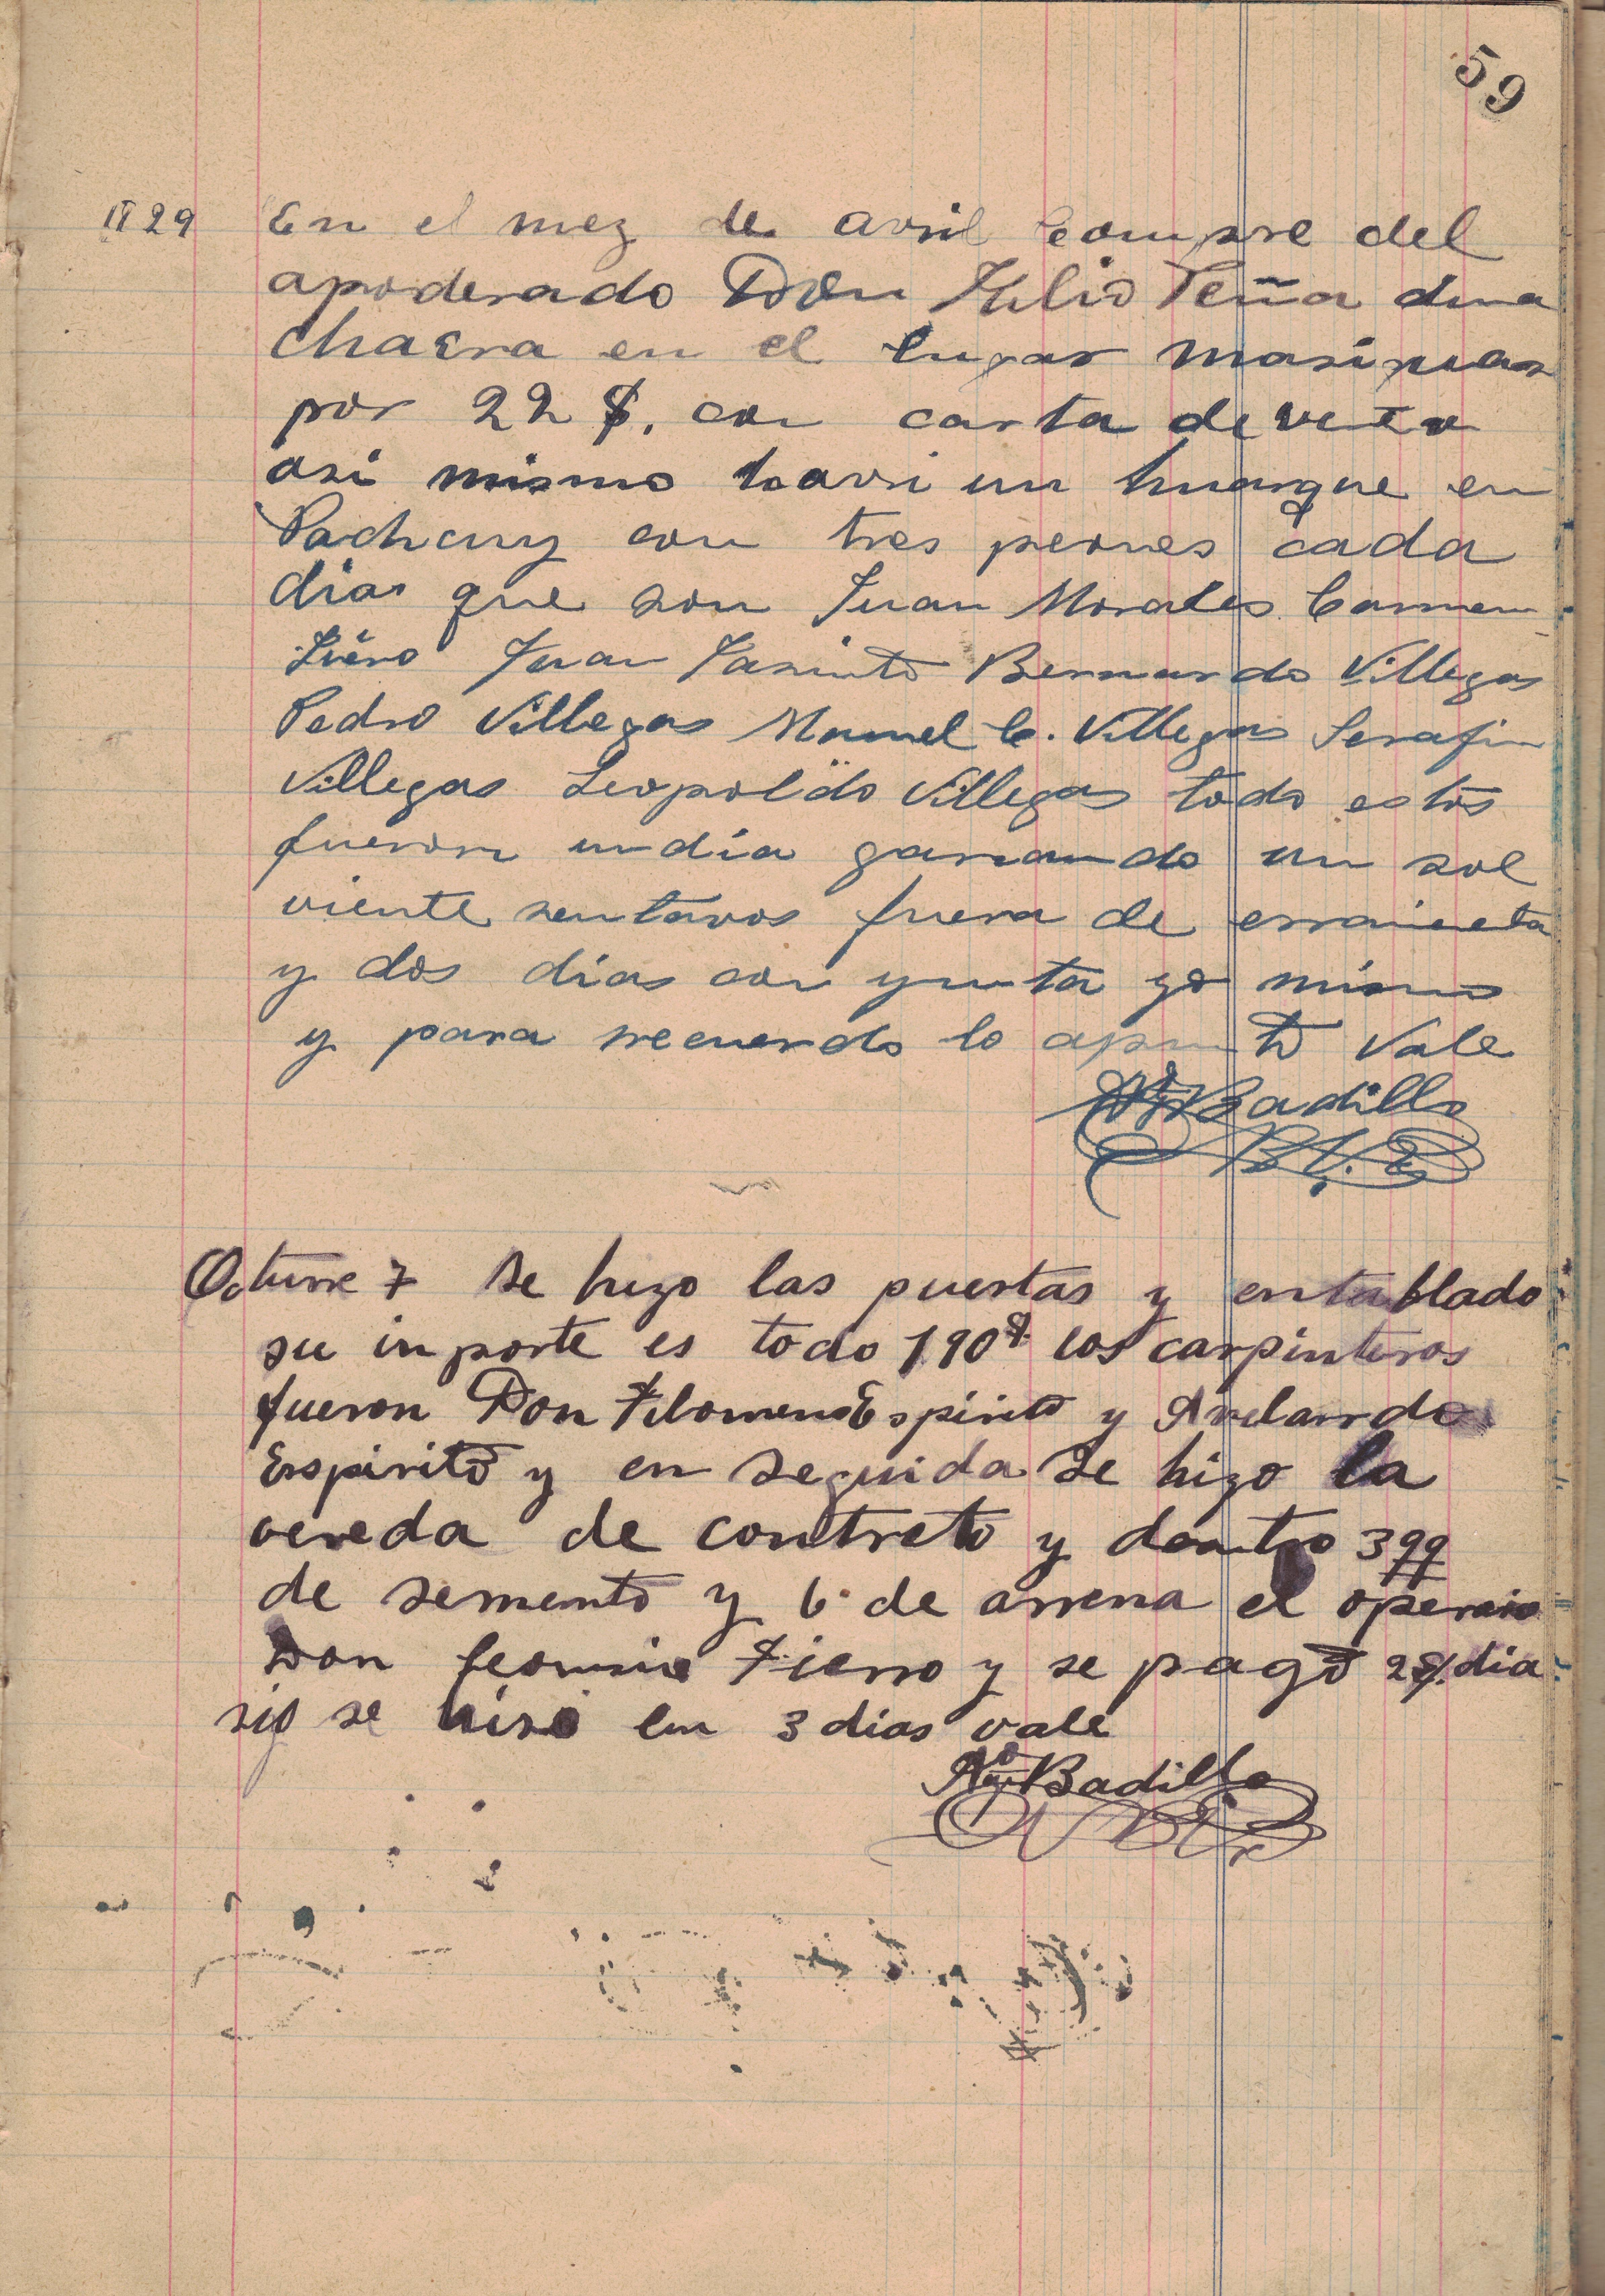 59
29 En el mez de avril compre del
apoderado Don Julio Peña una
chacra en el lugar
por 22 $. con carta de
asi mismo un en
Pachcuy con tres peones cada
dias que son Juan Morales Carmen
Juan Jasinto Bernardo Villegas
Pedro Villegas Manuel C. Villegas Serafin
Villegas Leopoldo Villegas todo estos
fueron un dia ganando un sol
viente sentavos fuera de erramienta
y dos dias con yunta yo mismo
y para recuerdo lo apunto Vale
Badillo
Octuvre 7 Se hizo las puertas y entablado
su inporte es todo 190$ los carpinteros
fueron Don Filomeno Espirito y Avelardo
Espirito y en seguida se hizo la
vereda de contreto y dentro 3 qq
de semento y 6 de arrena el operario
Don Fierro y se pagó 2$. dia
rio se hiso en 3 dias vale
Badillo